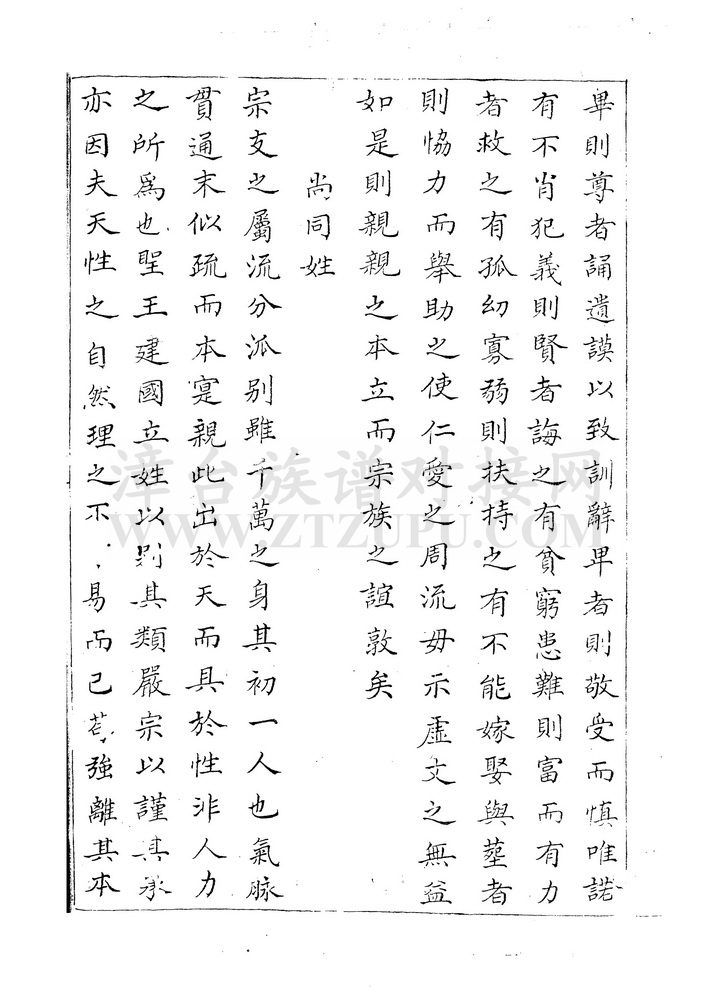 畢則尊者誦遺謨以致訓辭卑者則敬受而慎唯諾
有不肖犯義則賢者誨之有貧窮患難則富而有力
者救之有孤幼寡弱則扶持之有不能嫁娶與塟者
則恊力而舉助之使仁愛之周流毋示虛文之無益
如是則親親之本立而宗族之誼敦矣
尚同姓
宗支之屬流分派别雖千萬之身其初一人也氣脉
貫通末似疏而本寔親此出於天而具於性非人力
之所爲也聖王建國立姓以别其類嚴宗以謹其承
亦因夫天性之自然理之不易而已若強離其本
漳台族谱对接网
WWW.ZTZUPU.COM